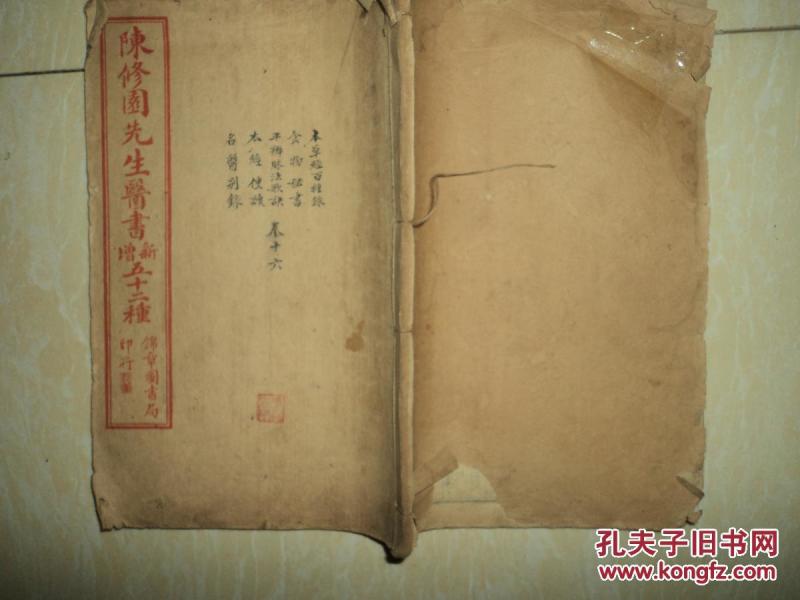 陳修園先生醫書新增五十二種
錦章圖書局
印行
本草經百種錄
食物秘書
平梅脉法歌訣
本經便讀
名醫別錄
卷十六
孔夫子旧书网
www.kongfz.com